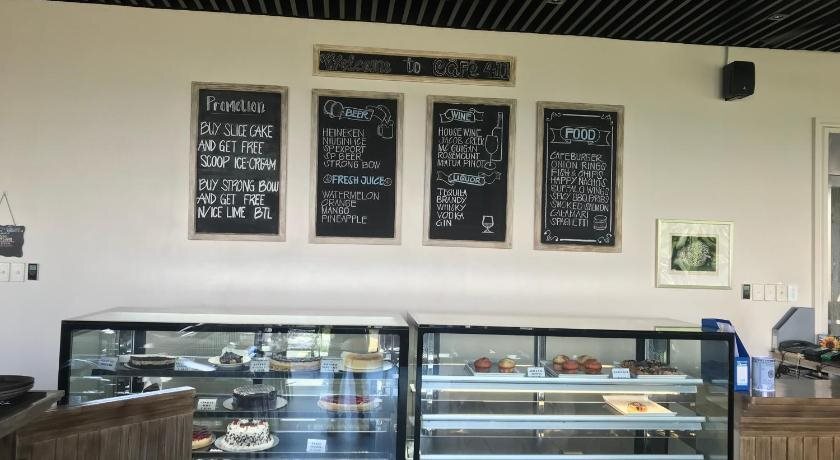 Welcome to CAFE 4:11
Promotion
BUY SLICE CAKE
AND GET FREE
SCOOP ICE-CREAM
BUY STRONG BOW
AND GET FREE
N/ICE LIME BTL
BEER
HEINEKEN
NIUGINI ICE
SP EXPORT
SP BEER
STRONG BOW
FRESH JUICE
WATERMELON
ORANGE
MANGO
PINEAPPLE
WINE
HOUSE WINE
JACOB CREEK
MC GUIGAN
ROSEMOUNT
MATUA PINOT
LIQUOR
TEQUILA
BRANDY
WHISKY
VODKA
GIN
FOOD
CAFE BURGER
ONION RINGS
FISH & CHIPS
HAPPY NACHOS
BUFFALO WINGS
SPICY BBQ
SMOKED SALMON
CALAMARI
SPAGHETTI